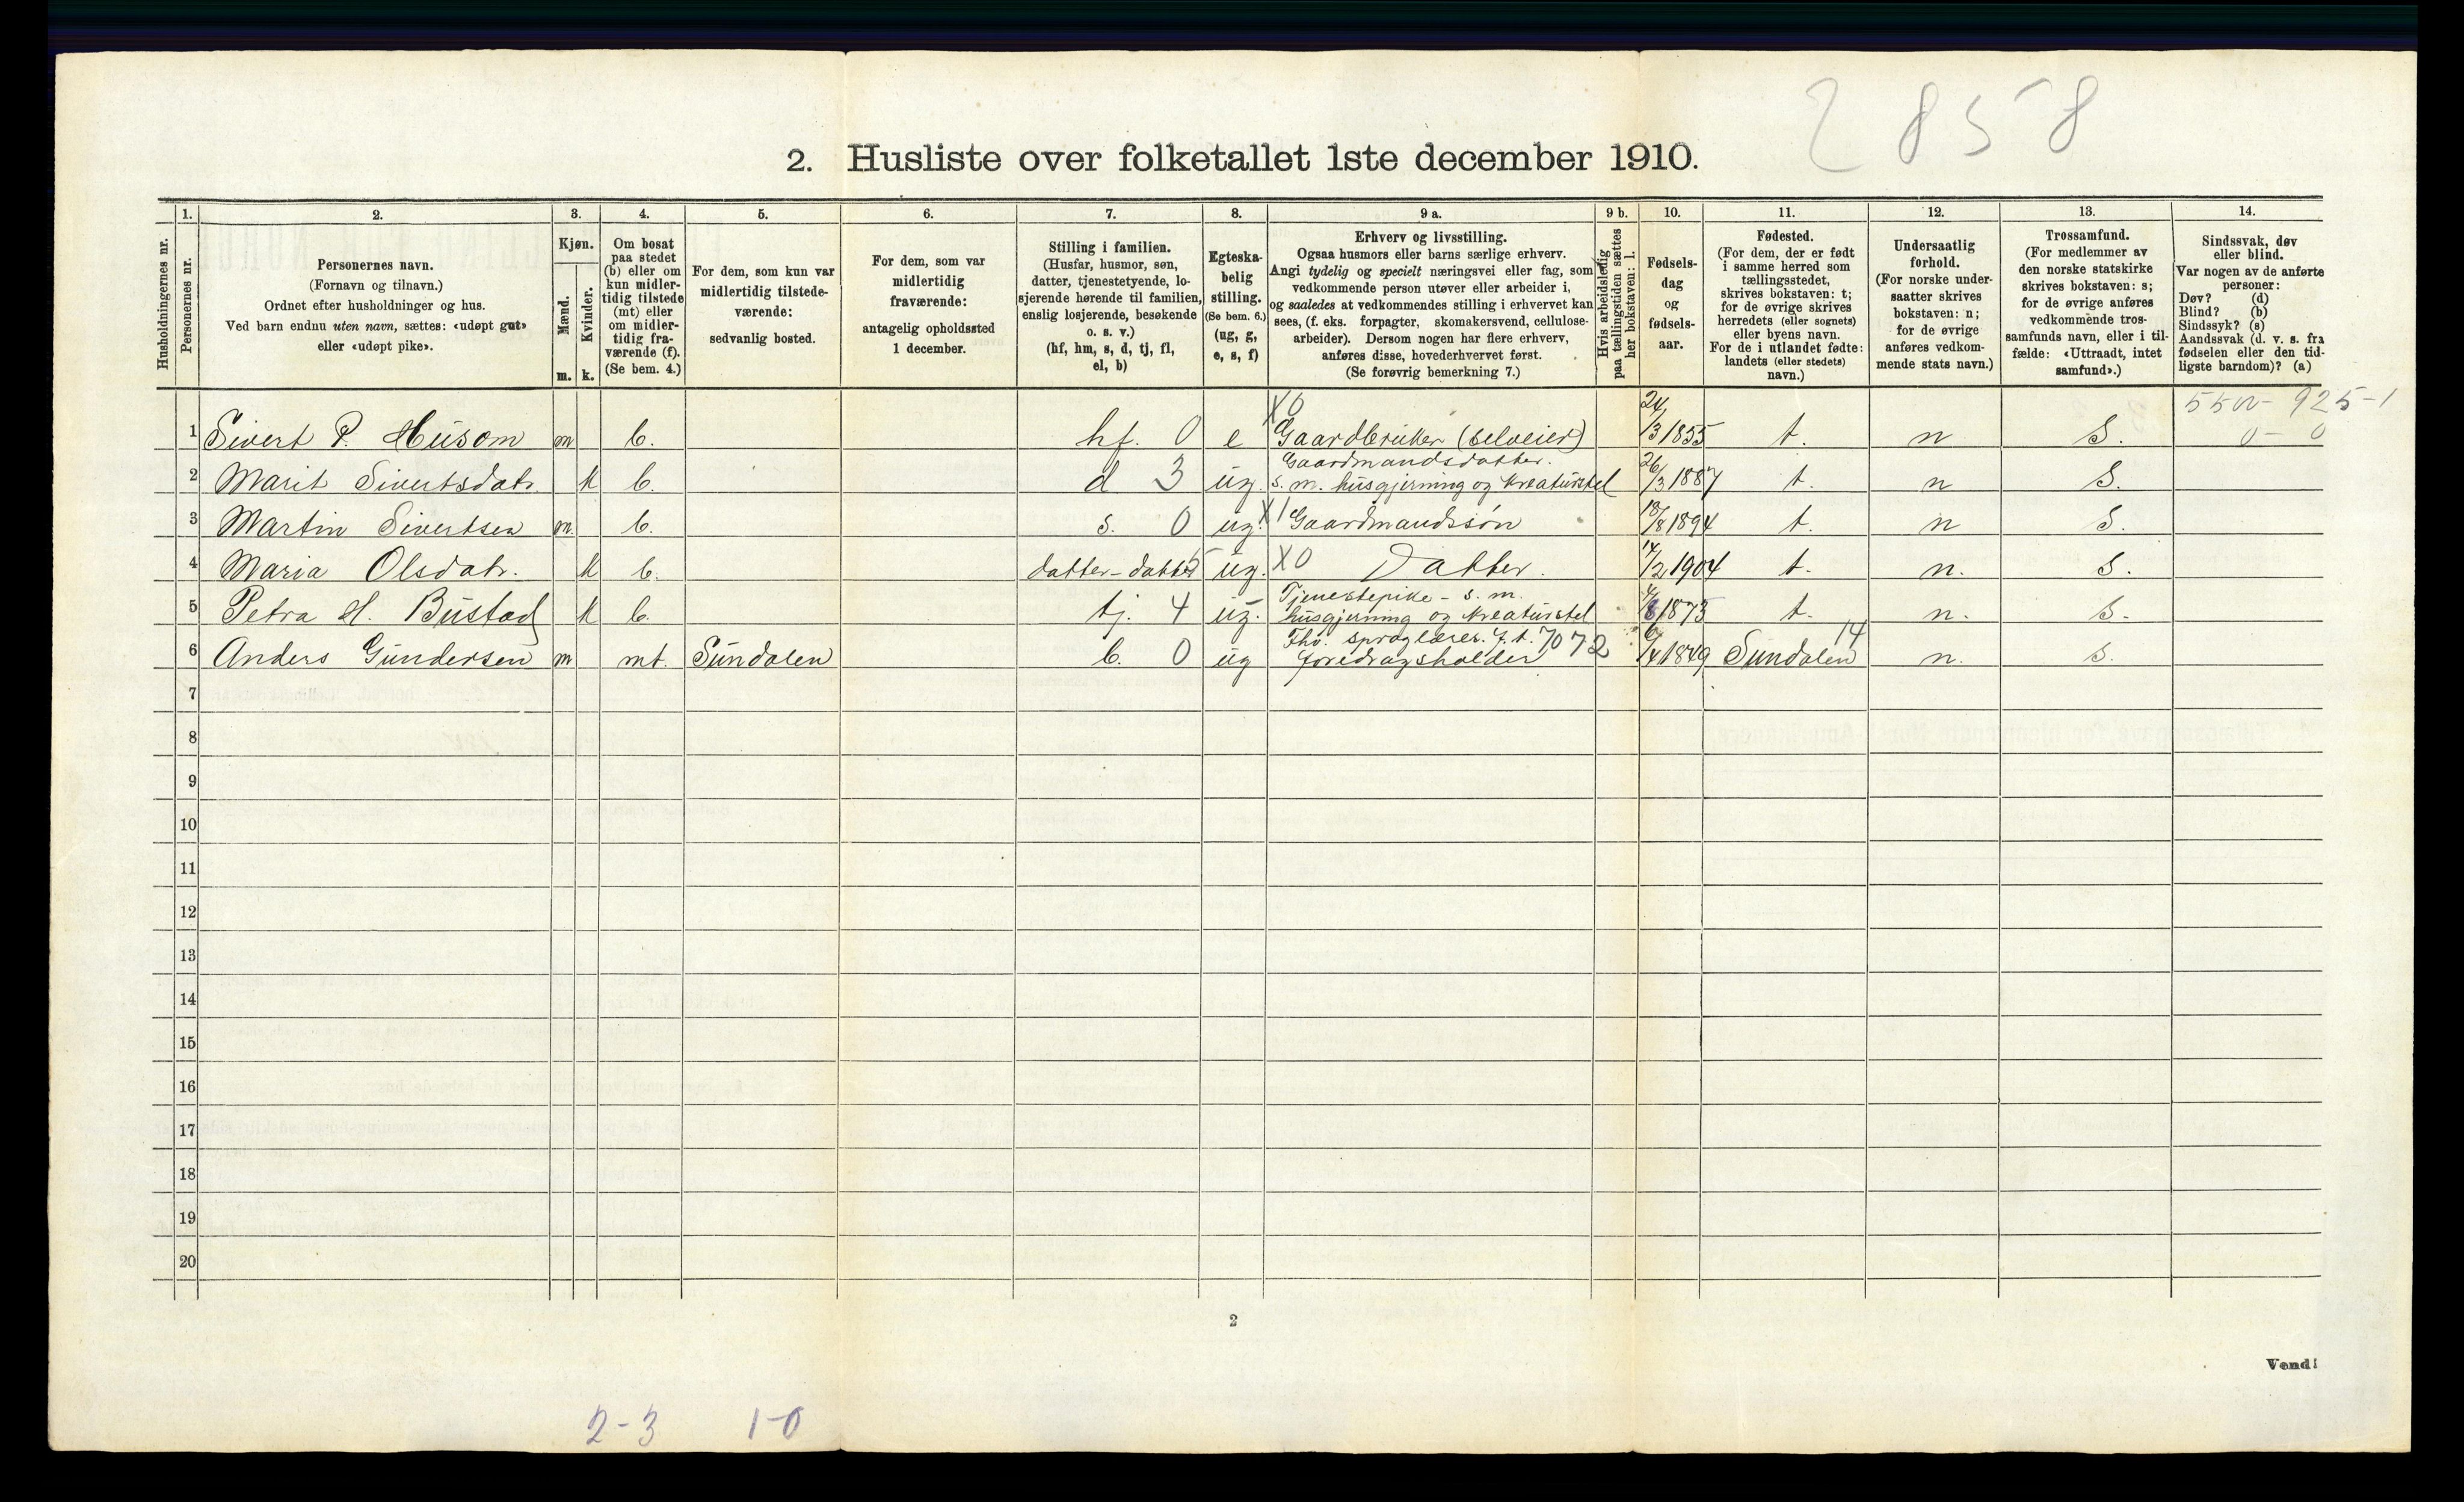 2858
2. Husliste over folketallet 1ste december 1910.
Husholdningernes nr.
1. Personernes nr.
2. Personernes navn.
(Fornavn og tilnavn.)
Ordnet efter husholdninger og hus.
Ved barn endnu uten navn, sættes: «udøpt gut»
eller «udøpt pike».
3. Kjøn.
Mænd. m.
Kvinder. k.
4. Om bosat
paa stedet
(b) eller om
kun midler-
tidig tilstede
(mt) eller
om midler-
tidig fra-
værende (f).
(Se bem. 4.)
5. For dem, som kun var
midlertidig tilstede-
værende:
sedvanlig bosted.
6. For dem, som var
midlertidig
fraværende:
antagelig opholdssted
1 december.
7. Stilling i familien.
(Husfar, husmor, søn,
datter, tjenestetyende, lo-
sjerende hørende til familien,
enslig losjerende, besøkende
o. s. v.)
(hf, hm, s, d, tj, fl,
el, b)
8. Egteska-
belig
stilling.
(Se bem. 6.)
(ug, g,
e, s, f)
9 a. Erhverv og livsstilling.
Ogsaa husmors eller barns særlige erhverv.
Angi tydelig og specielt næringsvei eller fag, som
vedkommende person utøver eller arbeider i,
og saaledes at vedkommendes stilling i erhvervet kan
sees, (f. eks. forpagter, skomakersvend, cellulose-
arbeider). Dersom nogen har flere erhverv,
anføres disse, hovederhvervet først.
(Se forøvrig bemerkning 7.)
9 b. Hvis arbeidsledig
paa tællingstiden sættes
her bokstaven: l.
10. Fødsels-
dag
og
fødsels-
aar.
11. Fødested.
(For dem, der er født
i samme herred som
tællingsstedet,
skrives bokstaven: t;
for de øvrige skrives
herredets (eller sognets)
eller byens navn.
For de i utlandet fødte:
landets (eller stedets)
navn.)
12. Undersaatlig
forhold.
(For norske under-
saatter skrives
bokstaven: n;
for de øvrige
anføres vedkom-
mende stats navn.)
13. Trossamfund.
(For medlemmer av
den norske statskirke
skrives bokstaven: s;
for de øvrige anføres
vedkommende tros-
samfunds navn, eller i til-
fælde: «Uttraadt, intet
samfund».)
14. Sindssvak, døv
eller blind.
Var nogen av de anførte
personer:
Døv? (d)
Blind? (b)
Sindssyk? (s)
Aandssvak (d. v. s. fra
fødselen eller den tid-
ligste barndom)? (a)
925-1
1 Sivert P. Husom m b. hf. 0 e X0 Gaardbruker (selveier) 24/3 1855 t. n S. 0-0
2 Marit Sivertsdatr. k b. d 3 ug. Gaardmandsdatter.
s. m. husgjerning og kreaturstel 26/3 1887 t. n S.
3 Martin Sivertsen m. b. s. 0 ug. X1 Gaardmandssøn 18/8 1894 t. n S.
4 Maria Olsdatr. k b. datter-datter ug. X0 Datter. 14/2 1904 t. n. S.
5 Petra H. Bustad k b. tj. 4 ug. Tjenestepike - s. m.
husgjerning og kreaturstel 4/8 1873 t. n. S.
6 Anders Gundersen m mt. Sundalen b. 0 ug Fhv. sproglærer. f. t. 7072
foredragsholder 6/4 1849 Sundalen 14 n. s.
7
8
9
10
11
12
13
14
15
16
17
18
19
20
2
Vend!
2-3 1-0